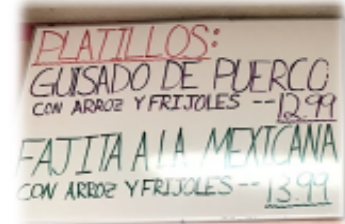 PLATILLOS:
GUISADO DE PUERCO
CON ARROZ Y FRIJOLES -- 12.99
FAJITA A LA MEXICANA
CON ARROZ Y FRIJOLES -- 13.99